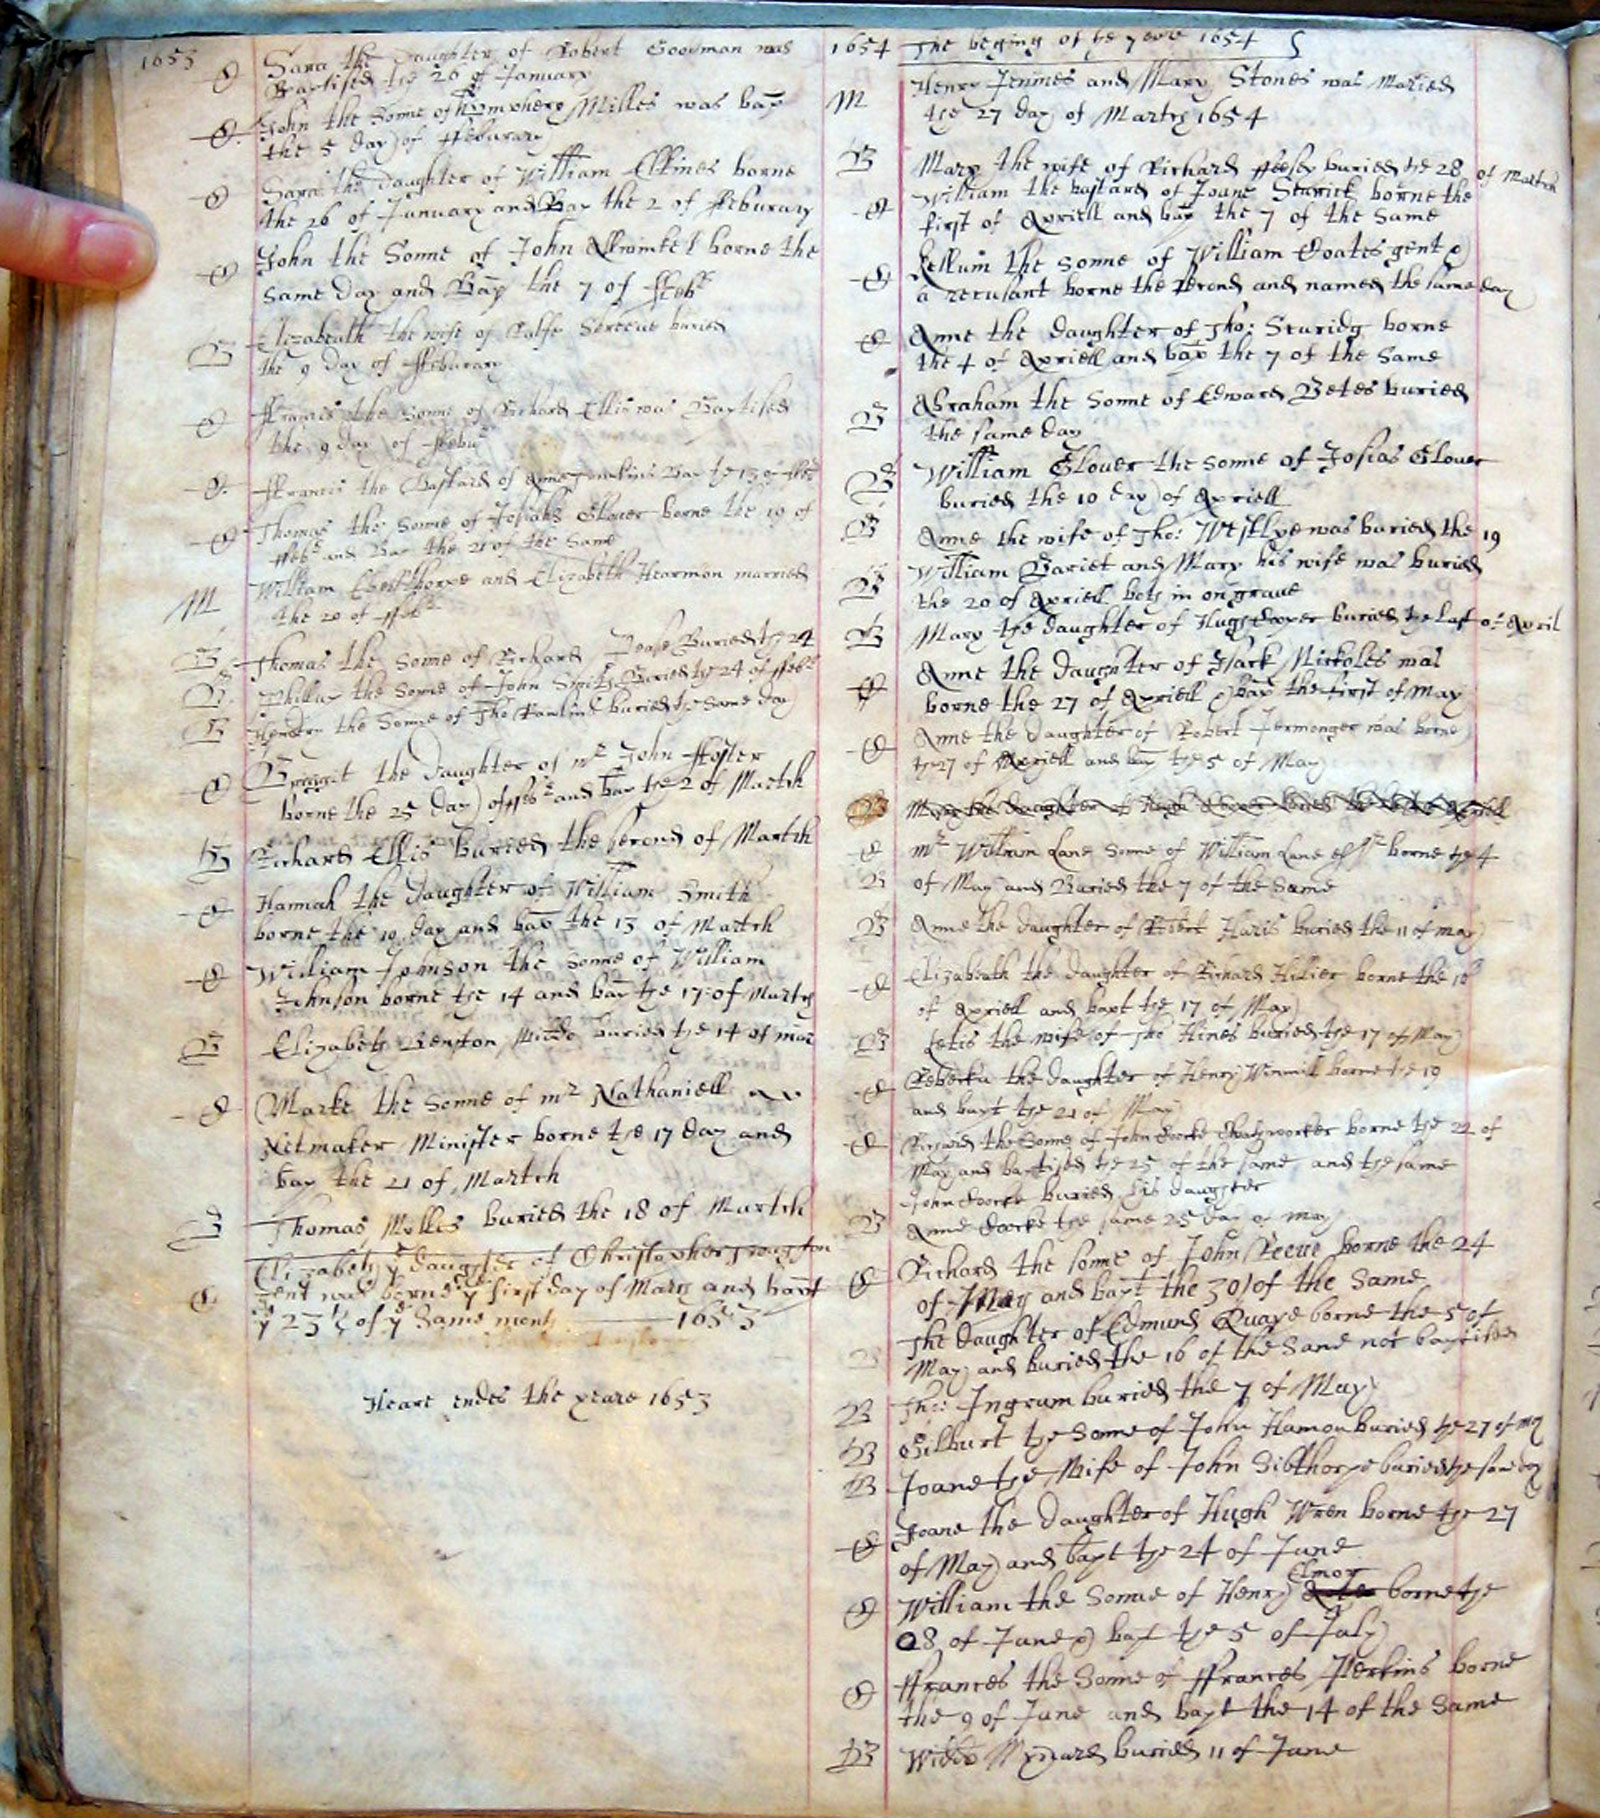 1653
Sara the Daughter of Robert Goodman was
Baptised the 26 of January
John the Sonne of Humphery Milles was bap
the 5 day of ffeburary
Sara the daughter of William Elkines borne
the 26 of January and Bap the 2 of ffeburary
John the Sonne of John borne the
same day and Bap the 7 of ffebr
Elizabeath the wife of Ralfe buried
the 9 day of ffeburary
ffrancis the Sonne of Richard Ellis was Baptised
the 9 day of ffebur
ffrancis the Bastard of Anne Bap the 13 of ffebr
Thomas the Sonne of Josiahs Glover borne the 19 of
ffebr and Bap the 21 of the Same
William and Elizabeth Hearmon married
the 20 of ffebr
Thomas the Sonne of Richard Pease Buried the 24
Phillip the Sonne of John Smith Buried the 24 of ffebr
the Sonne of Tho Rawlins buried the same day
the daughter of mr John ffoster
borne the 25 day of ffebr and bap the 2 of Martch
Richard Ellis buried the second of Martch
Hannah the daughter of William Smith
borne the 10 day and bap the 13 of Martch
William Johnson the Sonne of William
Johnson borne the 14 and bap the 17 of Martch
Elizabeth Widdo buried the 14 of mar
Marke the Sonne of mr Nathaniell
Netmaker Minister borne the 17 day and
bap the 21 of Martch
Thomas Milles buried the 18 of Martch
Elizabeth ye daughter of Christopher Troughton
gent was borne ye first day of March and bapt
ye 23th of ye Same month 1653
Heare endes the yeare 1653
1654 The begining of the yeare 1654
M Henry Jennies and Mary Stones was Maried
the 27 day of Martch 1654
B Mary the wife of Richard buried the 28 of Martch
William the bastard of Joane borne the
first of Apriell and bap the 7 of the Same
the Sonne of William Coates gent
a recusant borne the second and named the same day
Anne the daughter of Tho: Sturidg borne
the 4 of Apriell and bap the 7 of the Same
B Abraham the Sonne of Edward Betes buried
the same day
B William Glover the Sonne of Josias Glover
buried the 10 day of Apriell
B Anne the wife of Tho: was buried the 19
B William Bariet and Mary his wife was buried
the 20 of Apriell both in on grave
B Mary the daughter of Hugh buried the last of April
Anne the daughter of Isack Nickoles was
borne the 27 of Apriell bap the first of May
Anne the daughter of Robert Jermonger was borne
the 27 of Apriell and bap the 5 of May
B Mary the daughter of Hugh buried the of Apriell
mr William Lane Sonne of William Lane borne the 4
B of May and Buried the 7 of the Same
B Anne the daughter of Robert Haris buried the 11 of may
Elizabeath the daughter of Richard Hillier borne the 18
of Apriell and bapt the 17 of May
B Letis the wife of Tho Hines buried the 17 of May
Rebecka the daughter of Henry Winmill borne the 19
and bapt the 21 of May
the Sonne of John Coocke borne the 22 of
May and baptised the 25 of the same and the same
John Coocke buried his daughter
B Anne Coocke the same 25 day of may
Richard the sonne of John Reeve borne the 24
of May and bapt the 30 of the Same
The daughter of Edmund Quaye borne the 5 of
B May and buried the 16 of the Same not baptised
B Tho: Ingram buried the 7 of May
B Gilburt the Sonne of John Hamon buried the 27 of may
B Joane the Wife of John Sibthorpe buried the same day
Joane the daughter of Hugh Wren borne the 27
of May and bapt the 24 of June
Elmor
William the Sonne of Henry borne the
28 of June bap the 5 of July
ffrances the Sonne of ffrances Perkins borne
the 9 of June and bapt the 14 of the Same
B Widdo buried 11 of June